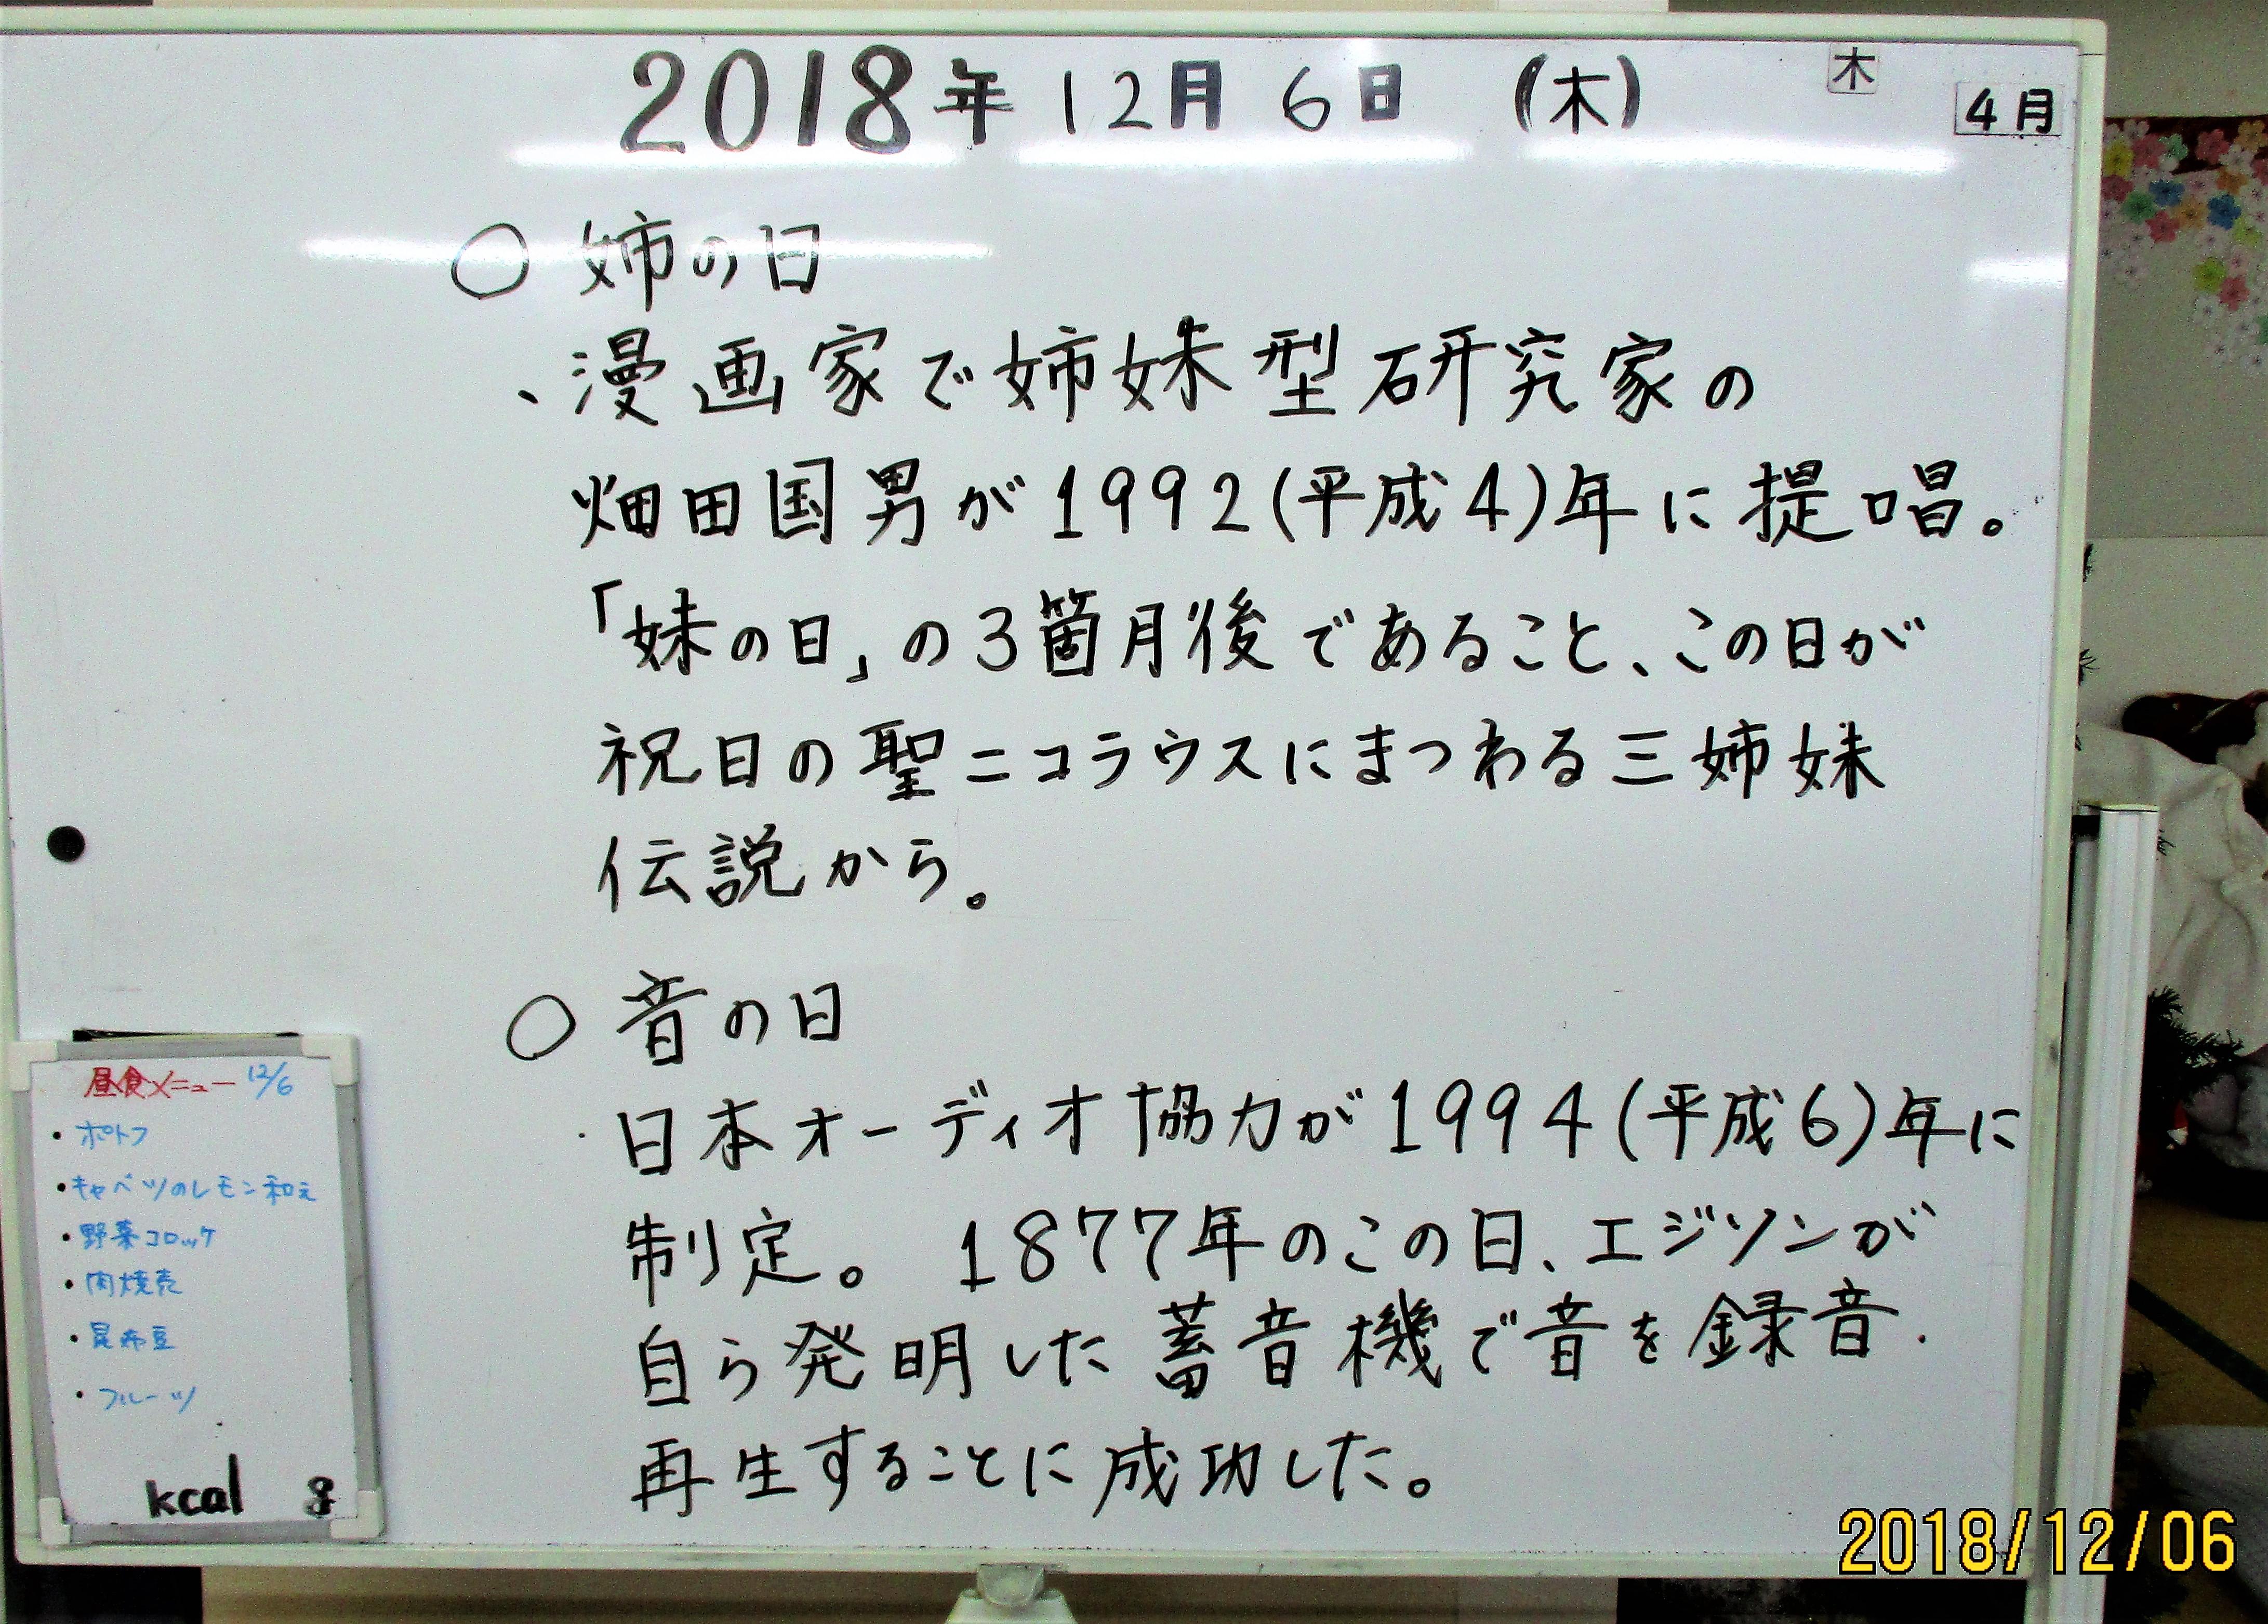 2018年 12月 6日 (木)
木
4月
○ 姉の日
、漫画家で姉妹型研究家の
畑田国男が1992(平成4)年に提唱。
「妹の日」の3箇月後であること、この日が
祝日の聖ニコラウスにまつわる三姉妹
伝説から。
○ 音の日
日本オーディオ協力が1994(平成6)年に
制定。 1877年のこの日、エジソンが
自ら発明した蓄音機で音を録音.
再生することに成功した。
昼食メニュー 12/6
・ポトフ
・キャベツのレモン和え
・野菜コロッケ
・肉焼売
・昆布豆
・フルーツ
kcal
2018/12/06